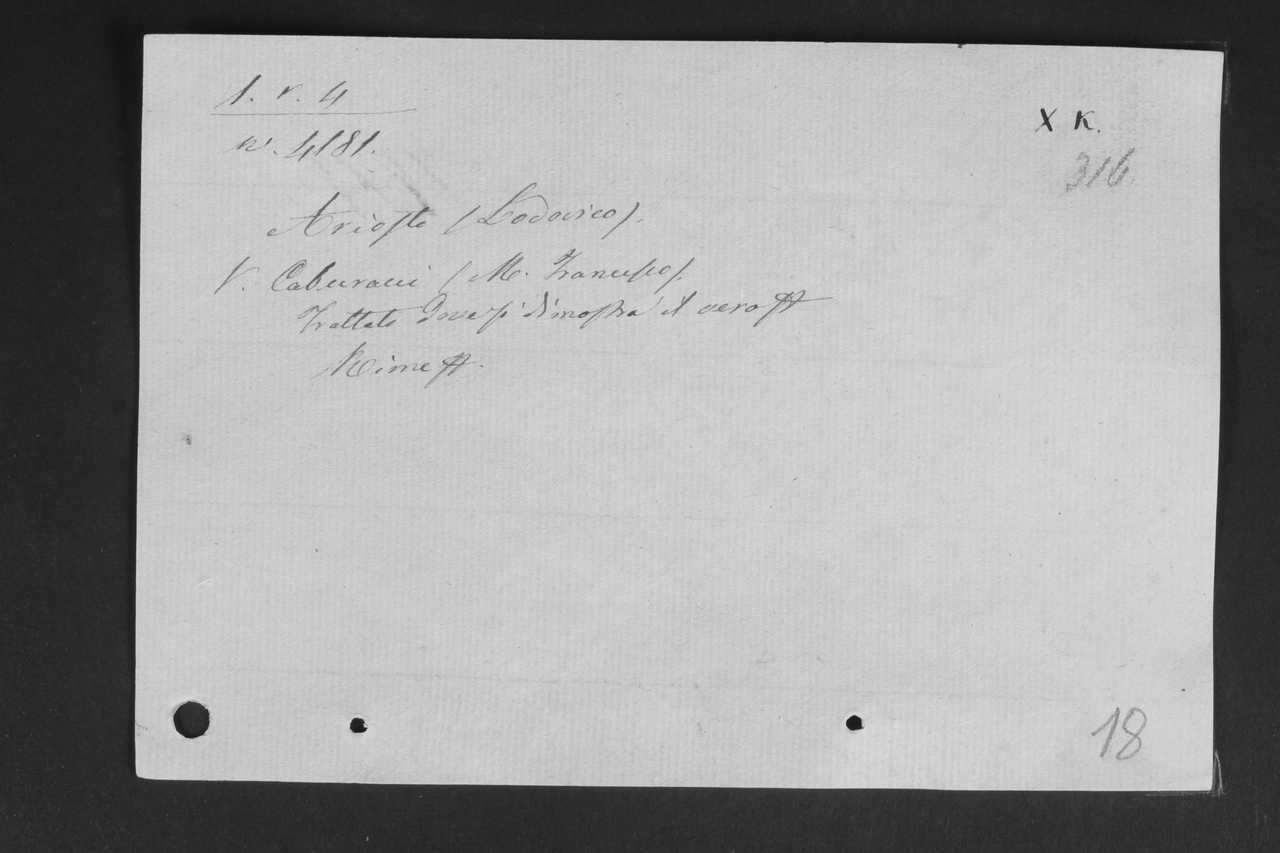 1. r. 4
n. 4181.
X K.
316
Ariosto (Lodovico).
V. Caburacci (M. Francesco).
Trattato dove si dimostra il vero
Rime
18